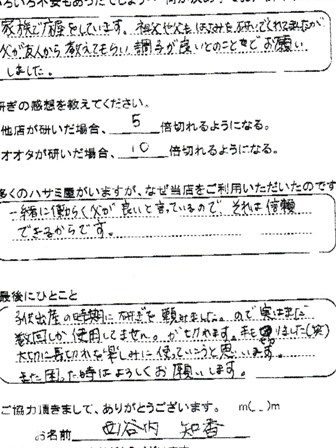 いろいろ不安もあったでしょう
家族で床屋をしています。祖父や父もはさみを研いでくれてましたが
父が友人から教えてもらい調子が良いとのことなどお願い
しました。
研ぎの感想を教えてください。
他店が研いだ場合、5倍切れるようになる。
オオタが研いだ場合、10倍切れるようになる。
多くのハサミ屋がいますが、なぜ当店をご利用いただいたのです
一緒に働らく父が良いと言っているので、それは信頼
できるからです。
最後にひとこと
出産の時期に研ぎを頼みました。ので実はまだ
数回しか使用してません。が切れます。手も切りました(笑)
大切に長切れを楽しみに使っていこうと思います。
また困った時はよろしくお願いします。
ご協力頂きまして、ありがとうございます。 m(_)m
お名前 西谷内 知香